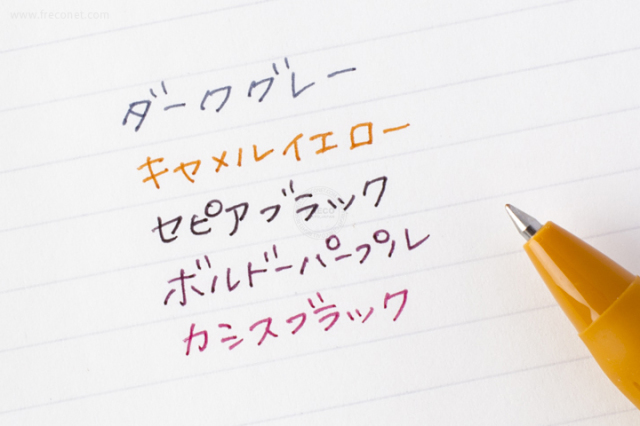 www.freconet.com
ダークグレー
キャメルイエロー
セピアブラック
ボルドーパープル
カシスブラック